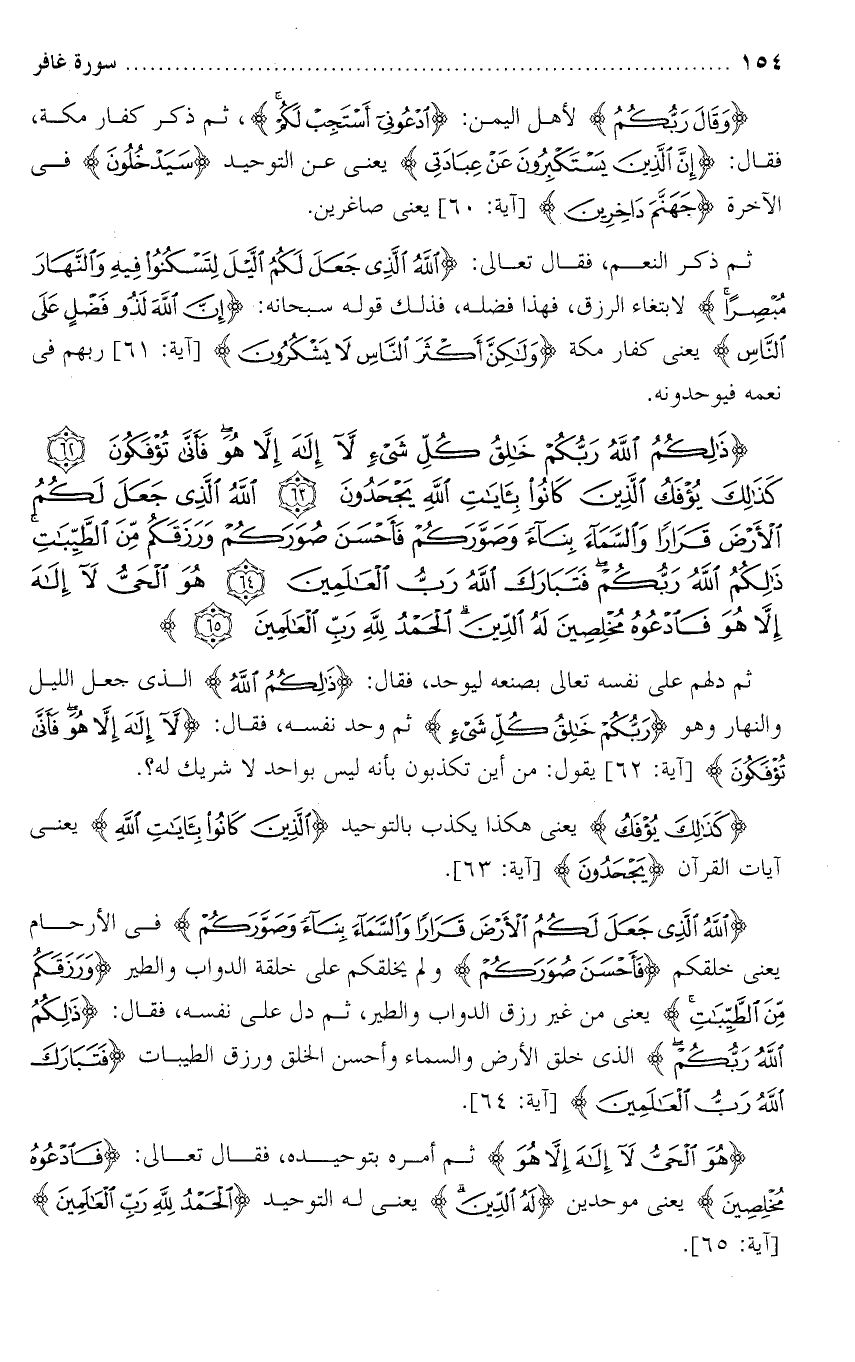 ١٥٤ ........................................................................ سورة غافر
﴿وَقَالَ رَبُّكُمُ﴾ لأهل اليمن: ﴿ٱدْعُونِىٓ أَسْتَجِبْ لَكُمْ ۚ﴾، ثم ذكر كفار مكة،
فقال: ﴿إِنَّ ٱلَّذِينَ يَسْتَكْبِرُونَ عَنْ عِبَادَتِى﴾ يعنى عن التوحيد ﴿سَيَدْخُلُونَ﴾ فى
الآخرة ﴿جَهَنَّمَ دَاخِرِينَ﴾ [آية: ٦٠] يعنى صاغرين.
ثم ذكر النعم، فقال تعالى: ﴿ٱللَّهُ ٱلَّذِى جَعَلَ لَكُمُ ٱلَّيْلَ لِتَسْكُنُوا۟ فِيهِ وَٱلنَّهَارَ
مُبْصِرًا ۚ﴾ لابتغاء الرزق، فهذا فضله، فذلك قوله سبحانه: ﴿إِنَّ ٱللَّهَ لَذُو فَضْلٍ عَلَى
ٱلنَّاسِ﴾ يعنى كفار مكة ﴿وَلَـٰكِنَّ أَكْثَرَ ٱلنَّاسِ لَا يَشْكُرُونَ﴾ [آية: ٦١] ربهم فى
نعمه فيوحدونه.
﴿ذَٰلِكُمُ ٱللَّهُ رَبُّكُمْ خَـٰلِقُ كُلِّ شَىْءٍ لَّآ إِلَـٰهَ إِلَّا هُوَ ۖ فَأَنَّىٰ تُؤْفَكُونَ ٦٢
كَذَٰلِكَ يُؤْفَكُ ٱلَّذِينَ كَانُوا۟ بِـَٔايَـٰتِ ٱللَّهِ يَجْحَدُونَ ٦٣ ٱللَّهُ ٱلَّذِى جَعَلَ لَكُمُ
ٱلْأَرْضَ قَرَارًا وَٱلسَّمَآءَ بِنَآءً وَصَوَّرَكُمْ فَأَحْسَنَ صُوَرَكُمْ وَرَزَقَكُم مِّنَ ٱلطَّيِّبَـٰتِ ۚ
ذَٰلِكُمُ ٱللَّهُ رَبُّكُمْ ۖ فَتَبَارَكَ ٱللَّهُ رَبُّ ٱلْعَـٰلَمِينَ ٦٤ هُوَ ٱلْحَىُّ لَآ إِلَـٰهَ
إِلَّا هُوَ فَٱدْعُوهُ مُخْلِصِينَ لَهُ ٱلدِّينَ ۗ ٱلْحَمْدُ لِلَّهِ رَبِّ ٱلْعَـٰلَمِينَ ٦٥﴾
ثم دلهم على نفسه تعالى بصنعه ليوحد، فقال: ﴿ذَٰلِكُمُ ٱللَّهُ﴾ الذى جعل الليل
والنهار وهو ﴿رَبُّكُمْ خَـٰلِقُ كُلِّ شَىْءٍ﴾ ثم وحد نفسه، فقال: ﴿لَّآ إِلَـٰهَ إِلَّا هُوَ ۖ فَأَنَّىٰ
تُؤْفَكُونَ﴾ [آية: ٦٢] يقول: من أين تكذبون بأنه ليس بواحد لا شريك له؟.
﴿كَذَٰلِكَ يُؤْفَكُ﴾ يعنى هكذا يكذب بالتوحيد ﴿ٱلَّذِينَ كَانُوا۟ بِـَٔايَـٰتِ ٱللَّهِ﴾ يعنى
آيات القرآن ﴿يَجْحَدُونَ﴾ [آية: ٦٣].
﴿ٱللَّهُ ٱلَّذِى جَعَلَ لَكُمُ ٱلْأَرْضَ قَرَارًا وَٱلسَّمَآءَ بِنَآءً وَصَوَّرَكُمْ﴾ فى الأرحام
يعنى خلقكم ﴿فَأَحْسَنَ صُوَرَكُمْ﴾ ولم يخلقكم على خلقة الدواب والطير ﴿وَرَزَقَكُم
مِّنَ ٱلطَّيِّبَـٰتِ ۚ﴾ يعنى من غير رزق الدواب والطير، ثم دل على نفسه، فقال: ﴿ذَٰلِكُمُ
ٱللَّهُ رَبُّكُمْ ۖ﴾ الذى خلق الأرض والسماء وأحسن الخلق ورزق الطيبات ﴿فَتَبَارَكَ
ٱللَّهُ رَبُّ ٱلْعَـٰلَمِينَ﴾ [آية: ٦٤].
﴿هُوَ ٱلْحَىُّ لَآ إِلَـٰهَ إِلَّا هُوَ﴾ ثم أمره بتوحيده، فقال تعالى: ﴿فَٱدْعُوهُ
مُخْلِصِينَ﴾ يعنى موحدين ﴿لَهُ ٱلدِّينَ ۗ﴾ يعنى له التوحيد ﴿ٱلْحَمْدُ لِلَّهِ رَبِّ ٱلْعَـٰلَمِينَ﴾
[آية: ٦٥].